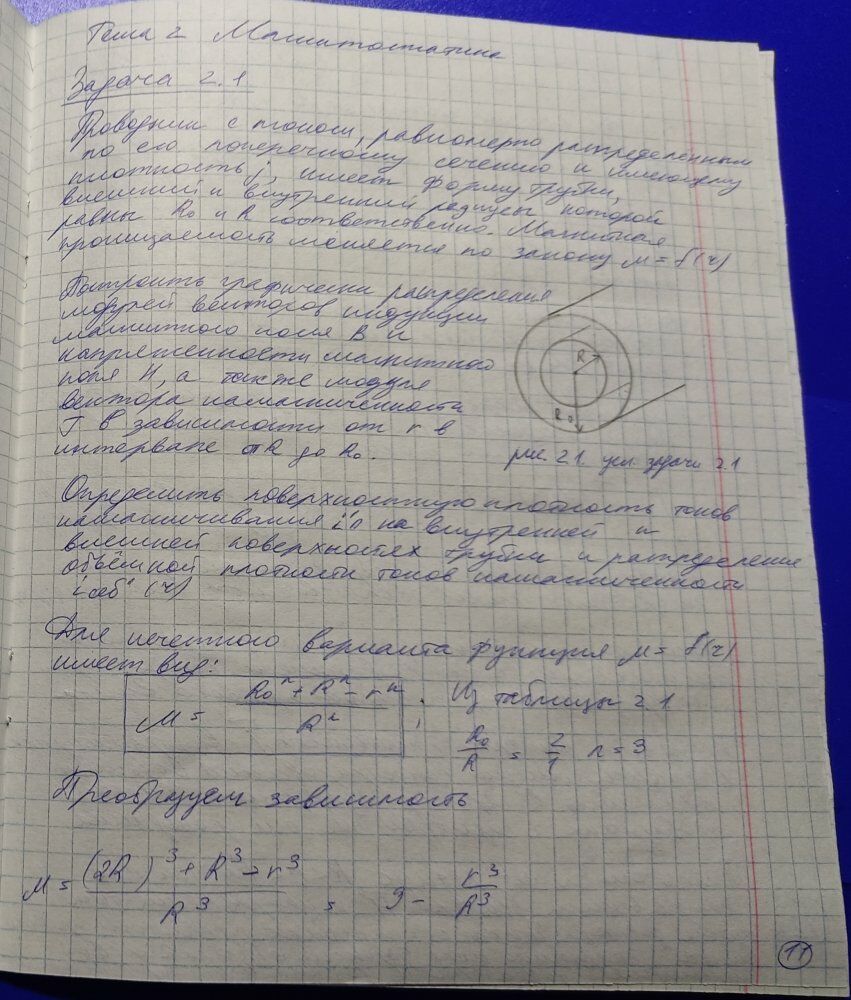 Тема 2 Магнитостатика
Задача 2.1
Проводник с током, равномерно распределённым
по его поперечному сечению и имеющему
плотность j, имеет форму трубки,
внешний и внутренний радиусы которой
равны R₀ и R соответственно. Магнитная
проницаемость меняется по закону μ = f(r)
Построить графически распределения
модулей векторов индукции
магнитного поля B и
напряжённости магнитного
поля H, а также модуля
вектора намагниченности
J в зависимости от r в
интервале от R до R₀.
R
R₀
рис. 2.1. усл. задачи 2.1
Определить поверхностную плотность токов
намагничивания i'п на внутренней и
внешней поверхностях трубки и распределение
объёмной плотности токов намагниченности
i'об (r)
Для нечётного варианта функция μ = f(r)
имеет вид:
μ = (R₀ⁿ + Rⁿ - rⁿ) / Rⁿ ; Из таблицы 2.1
R₀/R = 2/1 n = 3
Преобразуем зависимость
μ = ((2R)³ + R³ - r³) / R³ = 9 - r³/R³
11